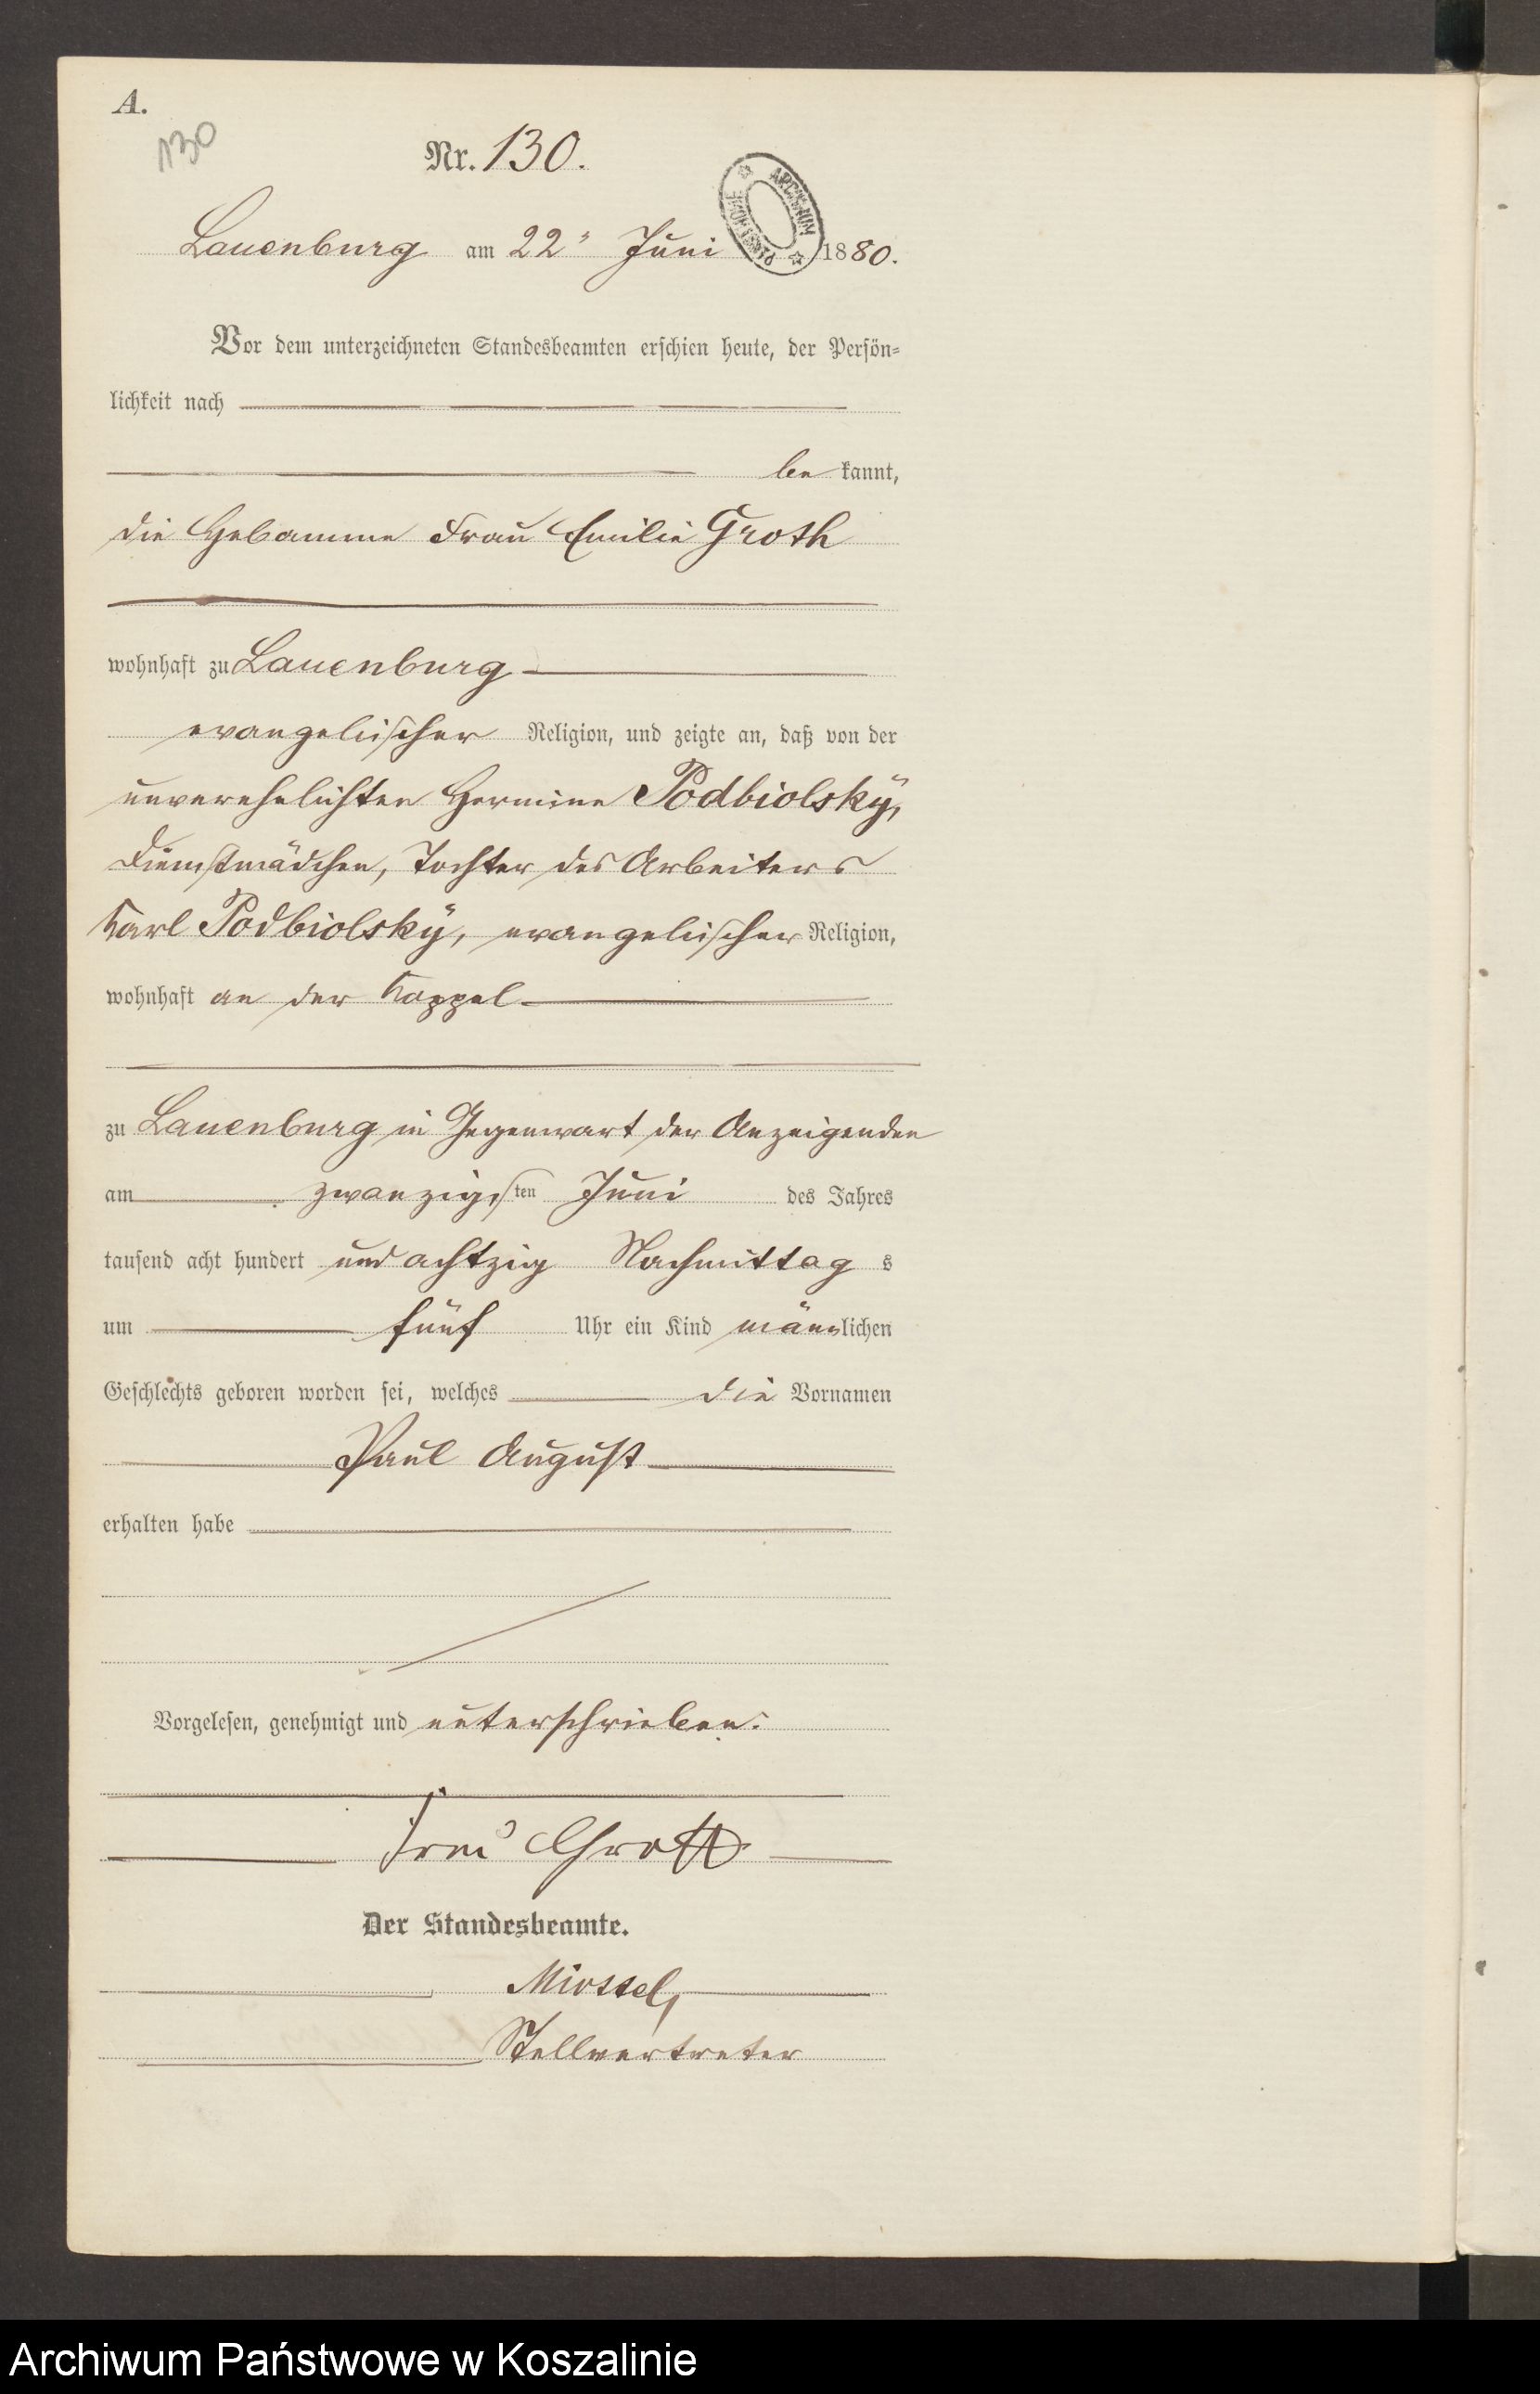 A.
130
Nr. 130.
ARCHIWUM
PAŃSTWOWE
Lauenburg am 22ᵗ Juni 1880.
Vor dem unterzeichneten Standesbeamten erschien heute, der Persön-
lichkeit nach
be kannt,
die Hebamme Frau Emilie Groth
wohnhaft zu Lauenburg
evangelischer Religion, und zeigte an, daß von der
unverehelichten Hermine Podbiolsky,
Dienstmädchen, Tochter des Arbeiters
Karl Podbiolsky, evangelischer Religion,
wohnhaft an der Kappel
zu Lauenburg in Gegenwart der Anzeigenden
am zwanzigsten Juni des Jahres
tausend acht hundert und achtzig Nachmittag s
um fünf Uhr ein Kind männlichen
Geschlechts geboren worden sei, welches die Vornamen
Paul August
erhalten habe
Vorgelesen, genehmigt und unterschrieben.
Frau Groth
Der Standesbeamte.
Stellvertreter
Archiwum Państwowe w Koszalinie